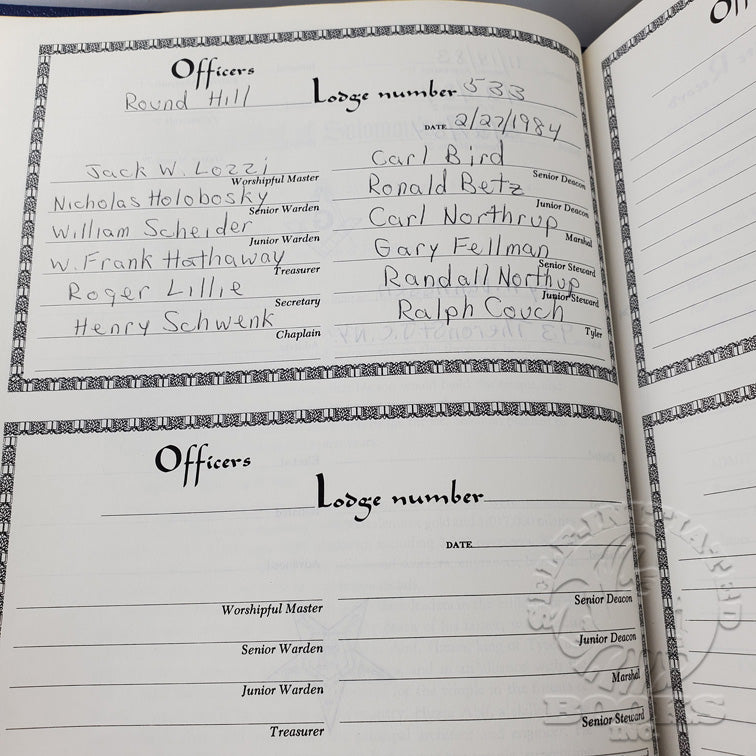 Officers
Round Hill Lodge number 533
DATE 2/27/1984
Jack W. Lozzi
Worshipful Master
Nicholas Holobosky
Senior Warden
William Scheider
Junior Warden
W. Frank Hathaway
Treasurer
Roger Lillie
Secretary
Henry Schwenk
Chaplain
Carl Bird
Senior Deacon
Ronald Betz
Junior Deacon
Carl Northrup
Marshal
Gary Fellman
Senior Steward
Randall Northup
Junior Steward
Ralph Couch
Tyler
Officers
Lodge number
DATE
Worshipful Master
Senior Warden
Junior Warden
Treasurer
Senior Deacon
Junior Deacon
Marshal
Senior Steward
SELF-INITIATED
BOOKS
INC.